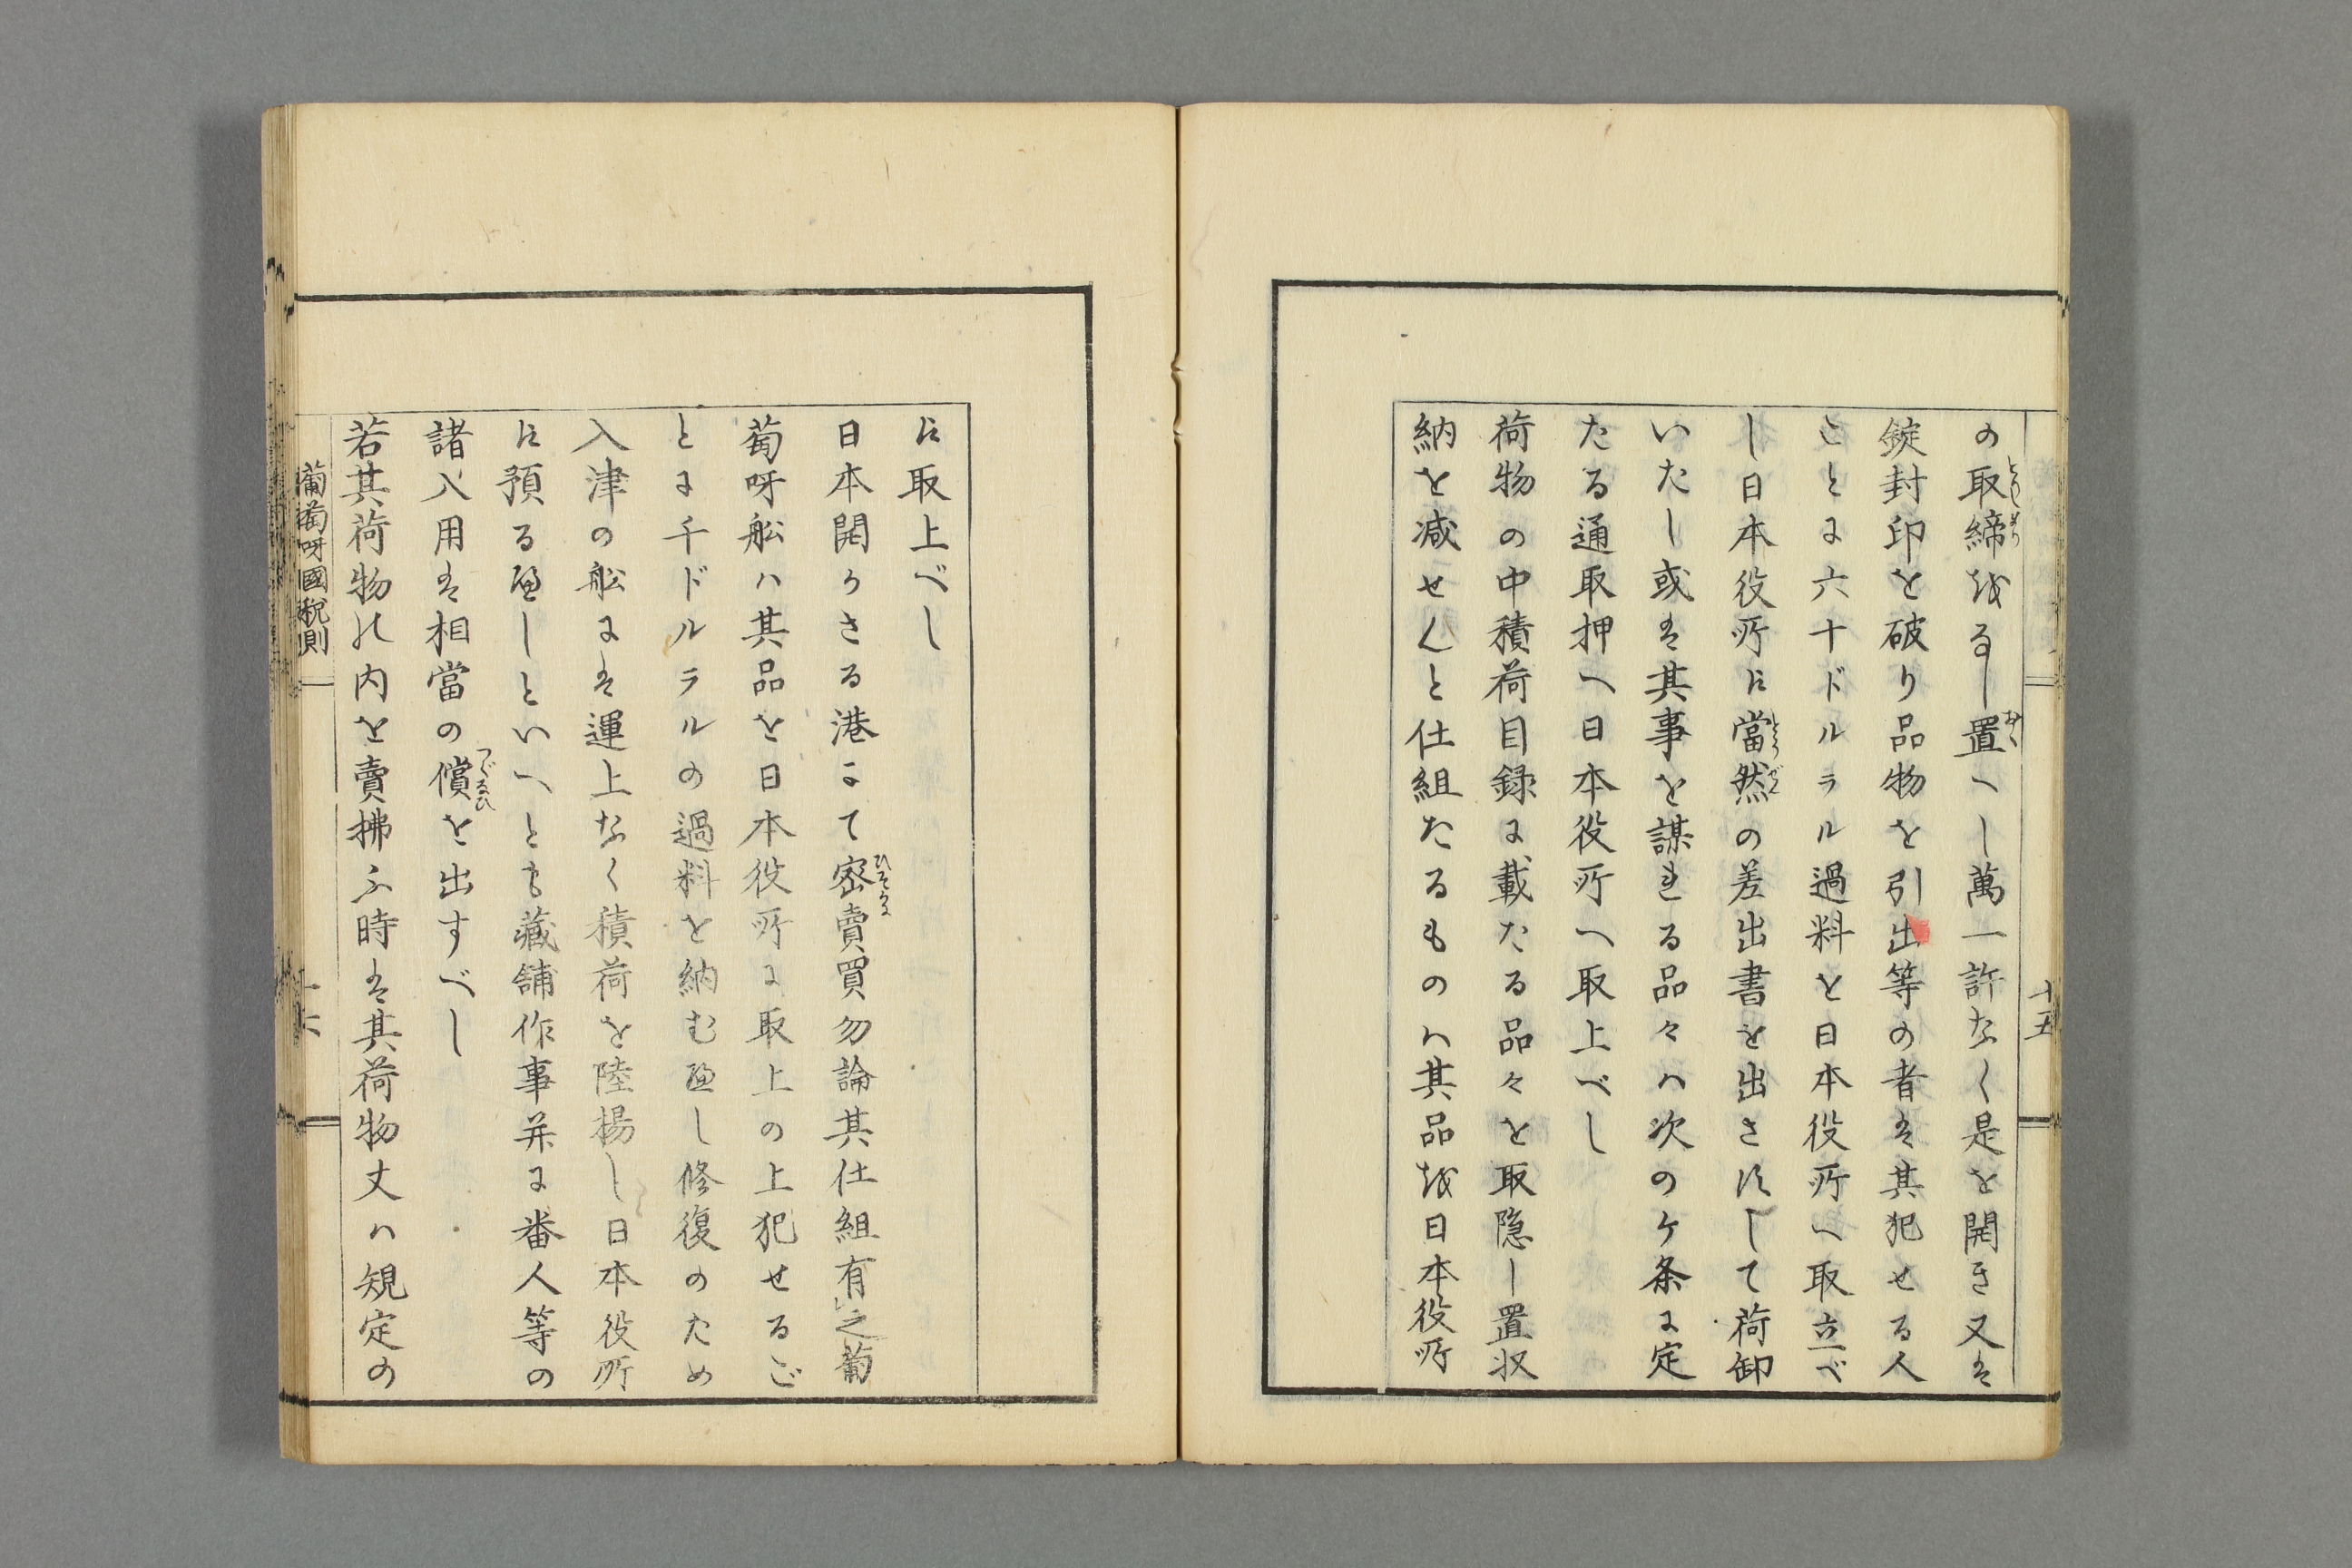 の取締をなし置へし萬一許なく是を開き又は
錠封印を破り品物を引出等の者は其犯せる人
ことに六十ドルラル過料を日本役所へ取立べ
し日本役所に當然の差出書を出さずして荷卸
いたし或は其事を謀れる品々ハ次のケ条に定
たる通取押へ日本役所へ取上べし
荷物の中積荷目録に載たる品々を取隠し置収
納を減せんと仕組たるものハ其品を日本役所
十五
に取上べし
日本開かさる港にて密賣買勿論其仕組有之葡
萄呀舩ハ其品を日本役所に取上の上犯せるご
とに千ドルラルの過料を納む可し修復のため
入津の舩には運上なく積荷を陸揚し日本役所
に預る可しといへとも藏舗作事并に番人等の
諸入用は相當の償を出すべし
若其荷物の内を賣拂ふ時は其荷物丈ハ規定の
葡萄呀國税則
十六